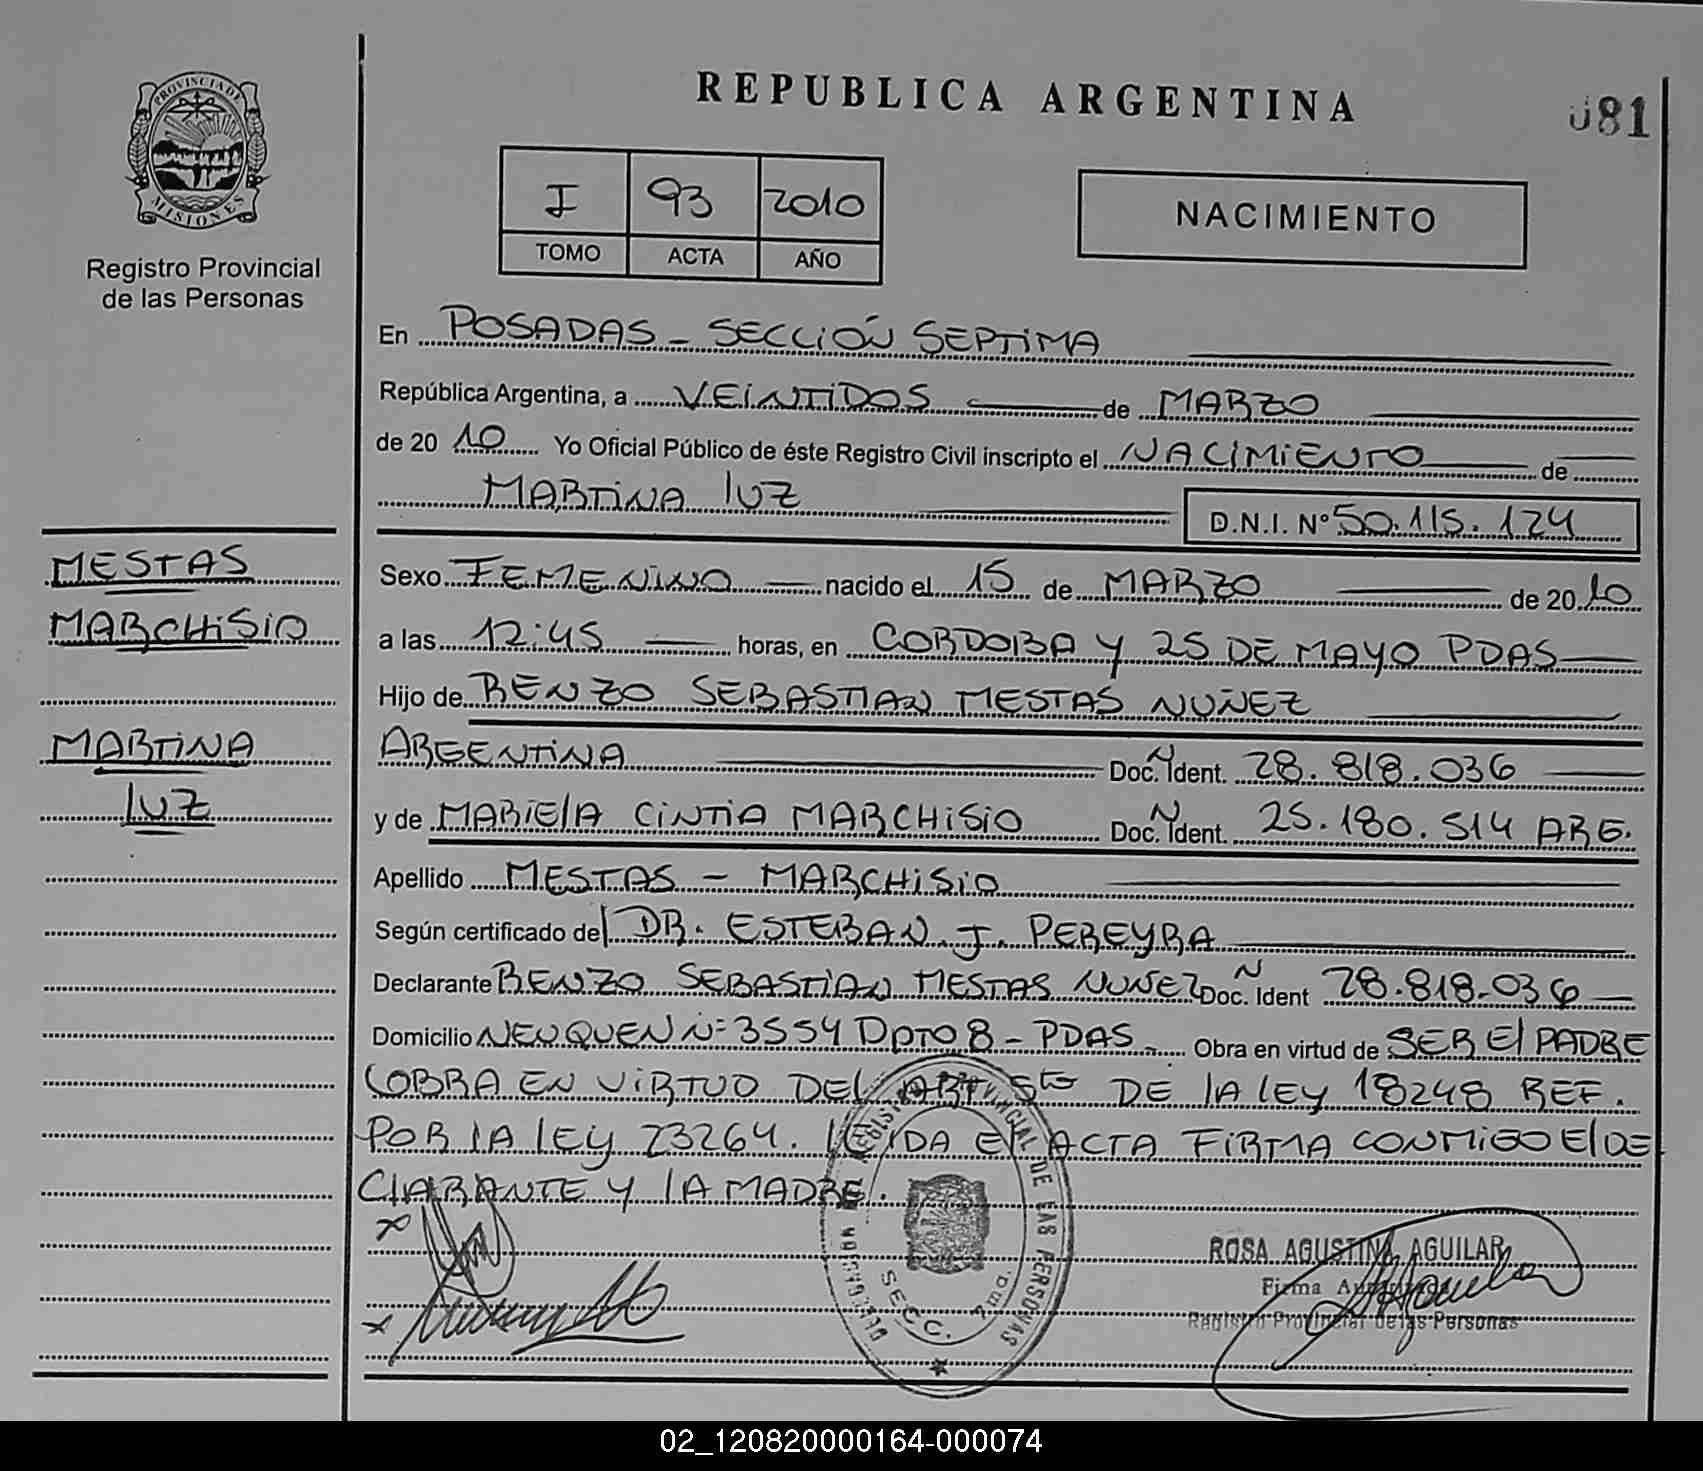 PROVINCIA DE
MISIONES
Registro Provincial
de las Personas
REPUBLICA ARGENTINA
081
I 93 2010
TOMO ACTA AÑO
NACIMIENTO
En POSADAS - SECCIÓN SEPTIMA
República Argentina, a VEINTIDOS de MARZO
de 20 10 Yo Oficial Público de éste Registro Civil inscripto el NACIMIENTO de
MARTINA LUZ D.N.I. Nº 50.115.124
MESTAS
MARCHISIO
MARTINA
LUZ
Sexo FEMENINO nacido el 15 de MARZO de 2010
a las 12:45 horas, en CORDOBA Y 25 DE MAYO PDAS
Hijo de RENZO SEBASTIAN MESTAS NUÑEZ
ARGENTINA Doc. Ident. N 28.818.036
y de MARIELA CINTIA MARCHISIO Doc. Ident. N 25.180.514 ARG.
Apellido MESTAS - MARCHISIO
Según certificado del DR. ESTEBAN J. PEREYRA
Declarante RENZO SEBASTIAN MESTAS NUÑEZ Doc. Ident N 28.818.036
Domicilio NEUQUEN Nº 3554 DPTO 8 - PDAS Obra en virtud de SER EL PADRE
COBRA EN VIRTUD DEL ART 5to DE LA LEY 18248 REF.
POR LA LEY 23264. LEIDA EL ACTA FIRMA CONMIGO EL DE
CLARANTE Y LA MADRE.
REGISTRO PROVINCIAL DE LAS PERSONAS
DELEGACION
SECC. 7ma.
ROSA AGUSTINA AGUILAR
Firma Autorizada
Registro Provincial de las Personas
02_120820000164-000074